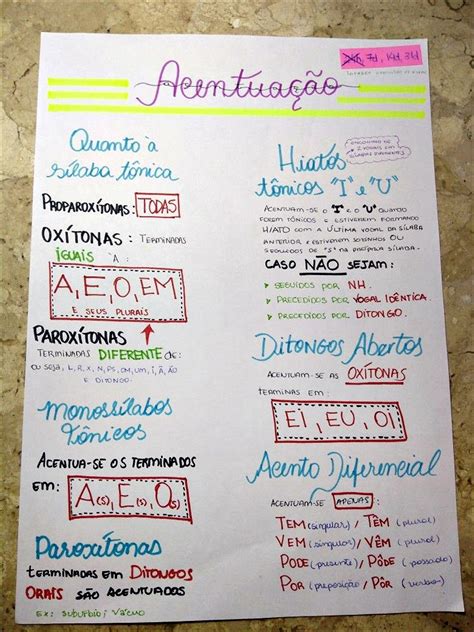 24h, 7d, 14d, 31d
Acentuação
Quanto à
sílaba tônica
Proparoxítonas: TODAS
OXÍTONAS: TERMINADAS
IGUAIS À:
A, E, O, EM
E SEUS PLURAIS
PAROXÍTONAS
TERMINADAS DIFERENTE DE:
OU SEJA, L, R, X, N, PS, OM, UM, I, Ã, ÃO
E DITONGO.
Monossílabos
tônicos
ACENTUA-SE OS TERMINADOS
EM:
A(s), E(s), O(s)
Paroxítonas
TERMINADAS EM DITONGOS
ORAIS SÃO ACENTUADOS
Ex: subúrbio;
Hiatos
tônicos "I" e "U"
ENCONTRO DE
2 VOGAIS EM
SÍLABAS DIFERENTES
ACENTUAM-SE O "I" E O "U" QUANDO
FOREM TÔNICOS E ESTIVEREM FORMANDO
HIATO COM A ÚLTIMA VOGAL DA SÍLABA
ANTERIOR E ESTIVEREM SOZINHOS OU
SEGUIDOS DE "S" NA PRÓPRIA SÍLABA.
CASO NÃO SEJAM:
SEGUIDOS POR NH.
PRECEDIDOS POR VOGAL IDÊNTICA.
PRECEDIDOS POR DITONGO.
Ditongos Abertos
ACENTUAM-SE AS OXÍTONAS
TERMINAS EM:
EI, EU, OI
Acento Diferencial
ACENTUAM-SE APENAS:
TEM (singular) / TÊM (plural)
VEM (singular) / VÊM (plural)
PODE (presente) / PÔDE (passado)
POR (preposição) / PÔR (verbo)